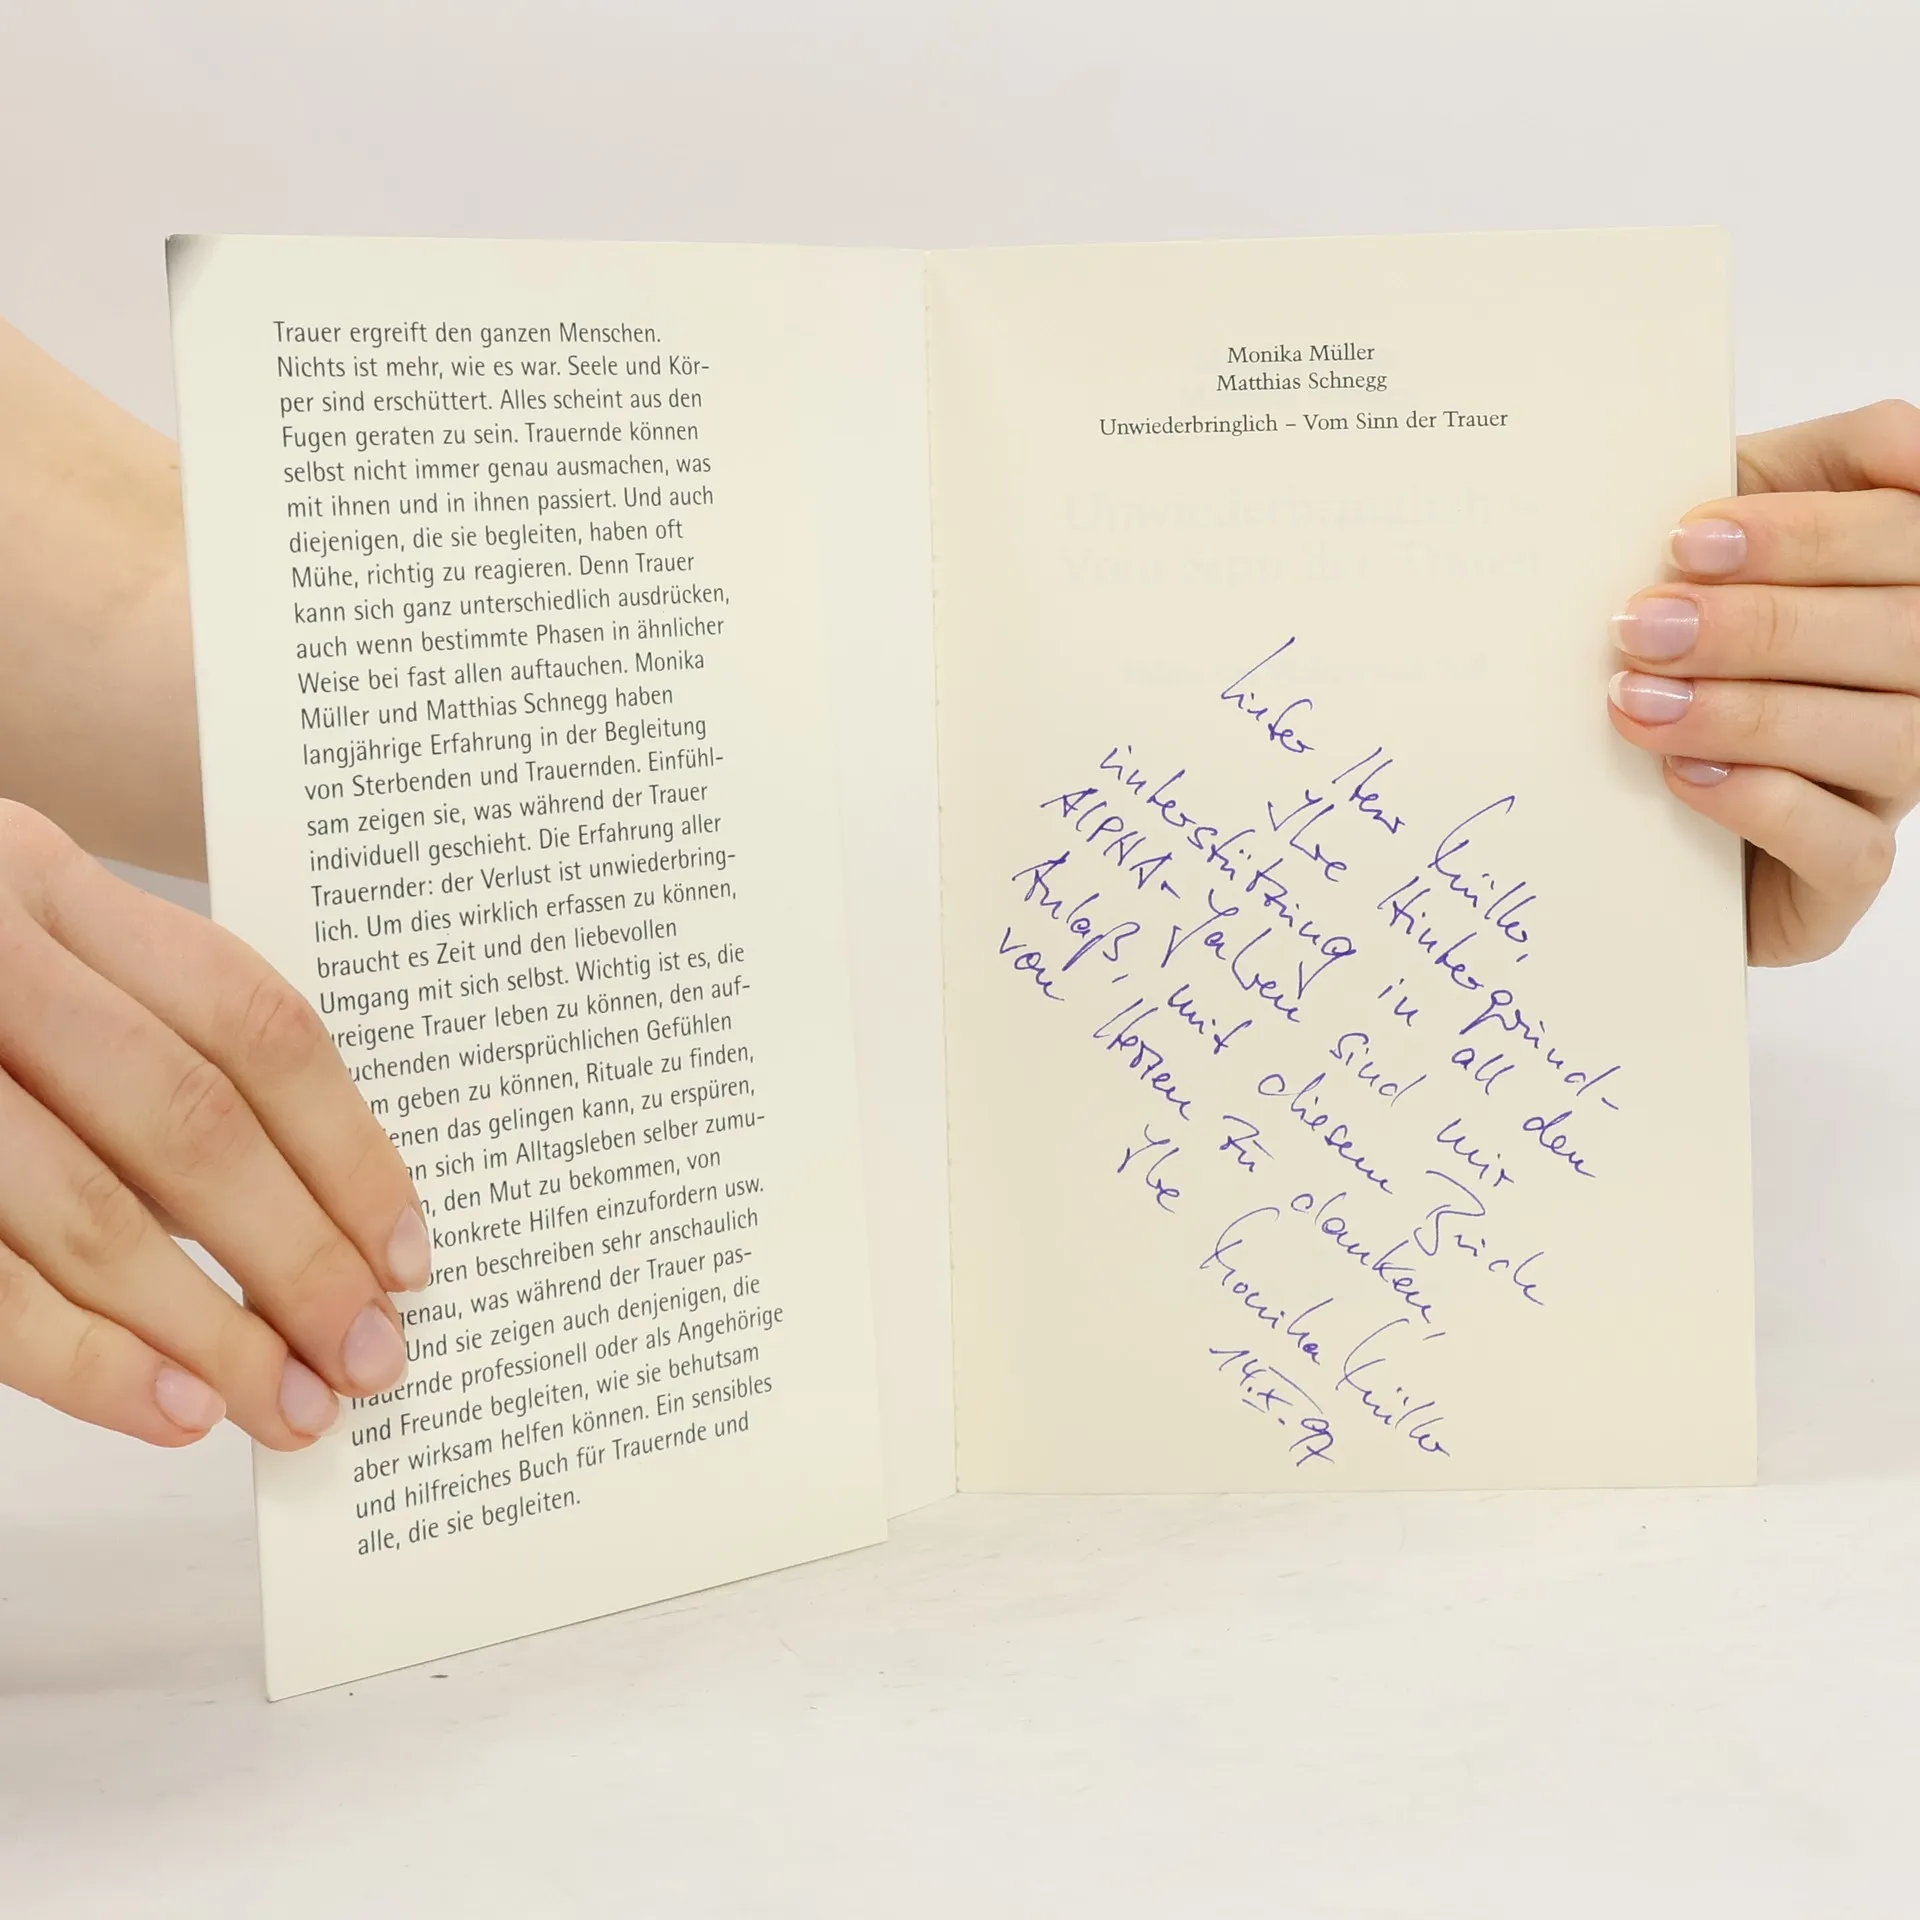 Trauer ergreift den ganzen Menschen.
Nichts ist mehr, wie es war. Seele und Kör-
per sind erschüttert. Alles scheint aus den
Fugen geraten zu sein. Trauernde können
selbst nicht immer genau ausmachen, was
mit ihnen und in ihnen passiert. Und auch
diejenigen, die sie begleiten, haben oft
Mühe, richtig zu reagieren. Denn Trauer
kann sich ganz unterschiedlich ausdrücken,
auch wenn bestimmte Phasen in ähnlicher
Weise bei fast allen auftauchen. Monika
Müller und Matthias Schnegg haben
langjährige Erfahrung in der Begleitung
von Sterbenden und Trauernden. Einfühl-
sam zeigen sie, was während der Trauer
individuell geschieht. Die Erfahrung aller
Trauernder: der Verlust ist unwiederbring-
lich. Um dies wirklich erfassen zu können,
braucht es Zeit und den liebevollen
Umgang mit sich selbst. Wichtig ist es, die
reigene Trauer leben zu können, den auf-
uchenden widersprüchlichen Gefühlen
m geben zu können, Rituale zu finden,
enen das gelingen kann, zu erspüren,
an sich im Alltagsleben selber zumu-
n, den Mut zu bekommen, von
konkrete Hilfen einzufordern usw.
oren beschreiben sehr anschaulich
genau, was während der Trauer pas-
Und sie zeigen auch denjenigen, die
Trauernde professionell oder als Angehörige
und Freunde begleiten, wie sie behutsam
aber wirksam helfen können. Ein sensibles
und hilfreiches Buch für Trauernde und
alle, die sie begleiten.
Monika Müller
Matthias Schnegg
Unwiederbringlich – Vom Sinn der Trauer
Lieber Herr Müller,
Ihre Hintergrund-
unterstützung in all den
ALPHA-Jahren sind mir
Anlaß, mit diesem Buch
von Herzen zu danken,
Ihre Monika Müller
14.X.97